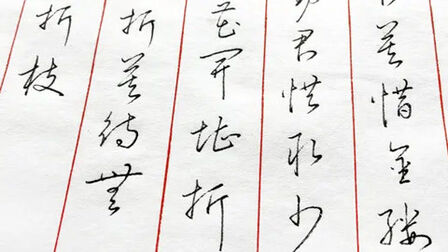 莫惜金縷
君惜取少
花開堪折
折莫待無
折枝